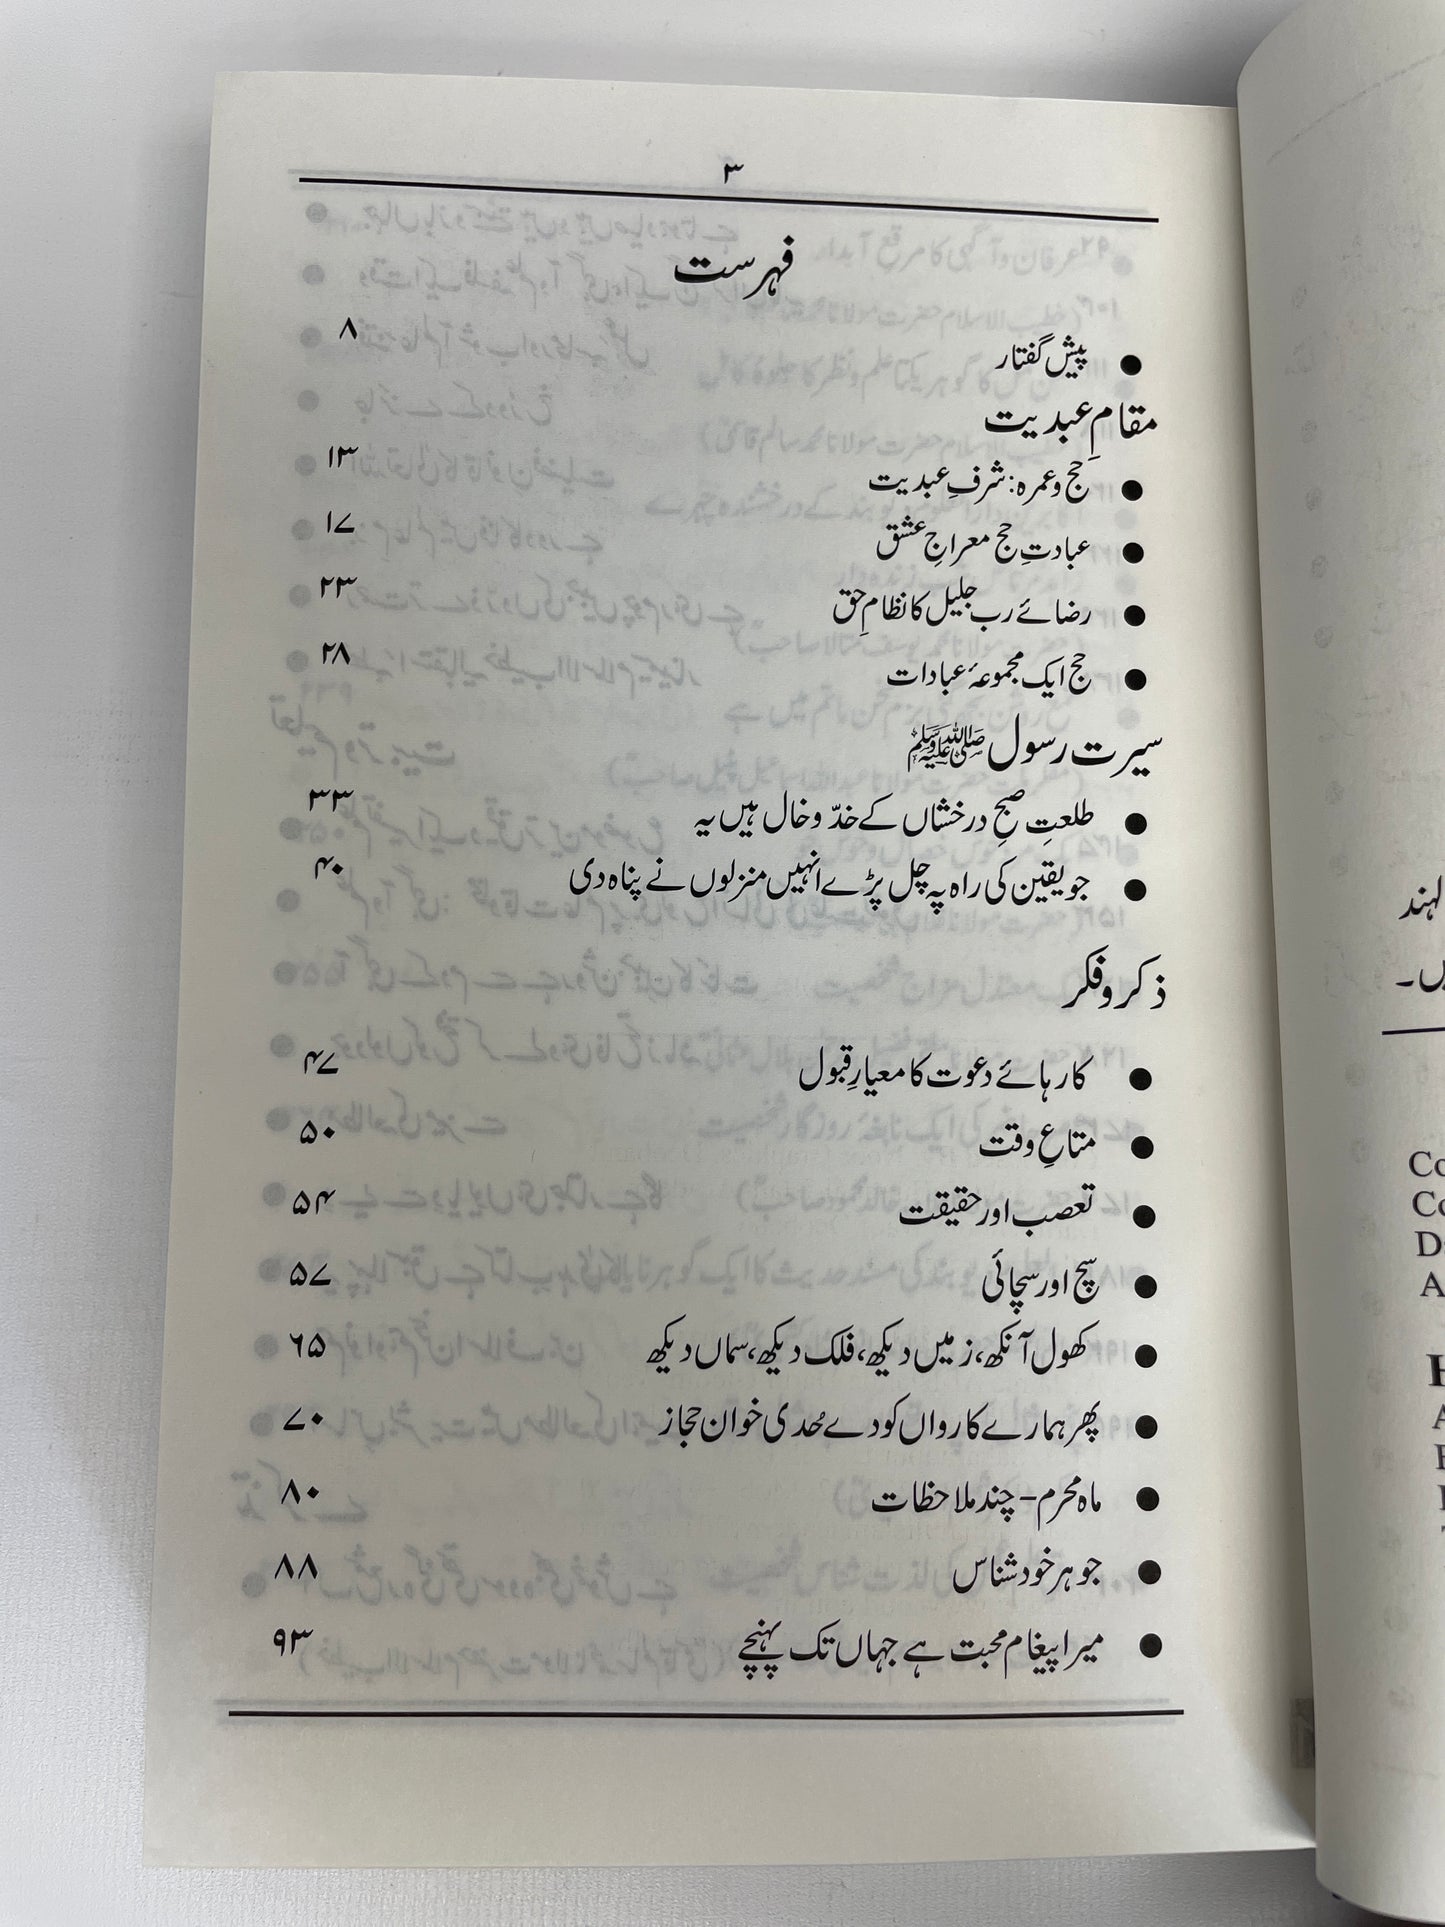 ۳
فہرست
● پیش گفتار ۸
مقامِ عبدیت
● حج وعمرہ: شرفِ عبدیت ۱۳
● عبادتِ حج معراجِ عشق ۱۷
● رضائے رب جلیل کا نظامِ حق ۲۳
● حج ایک مجموعۂ عبادات ۲۸
سیرت رسول ﷺ
● طلعتِ صبحِ درخشاں کے خدّ وخال ہیں یہ ۳۳
● جو یقین کی راہ پہ چل پڑے انہیں منزلوں نے پناہ دی ۴۰
ذکر وفکر
● کارہائے دعوت کا معیارِ قبول ۴۷
● متاعِ وقت ۵۰
● تعصب اور حقیقت ۵۴
● سچ اور سچائی ۵۷
● کھول آنکھ، زمیں دیکھ، فلک دیکھ، سماں دیکھ ۶۵
● پھر ہمارے کارواں کو دے حُدی خوان حجاز ۷۰
● ماہ محرم – چند ملاحظات ۸۰
● جوہر خود شناس ۸۸
● میرا پیغام محبت ہے جہاں تک پہنچے ۹۳